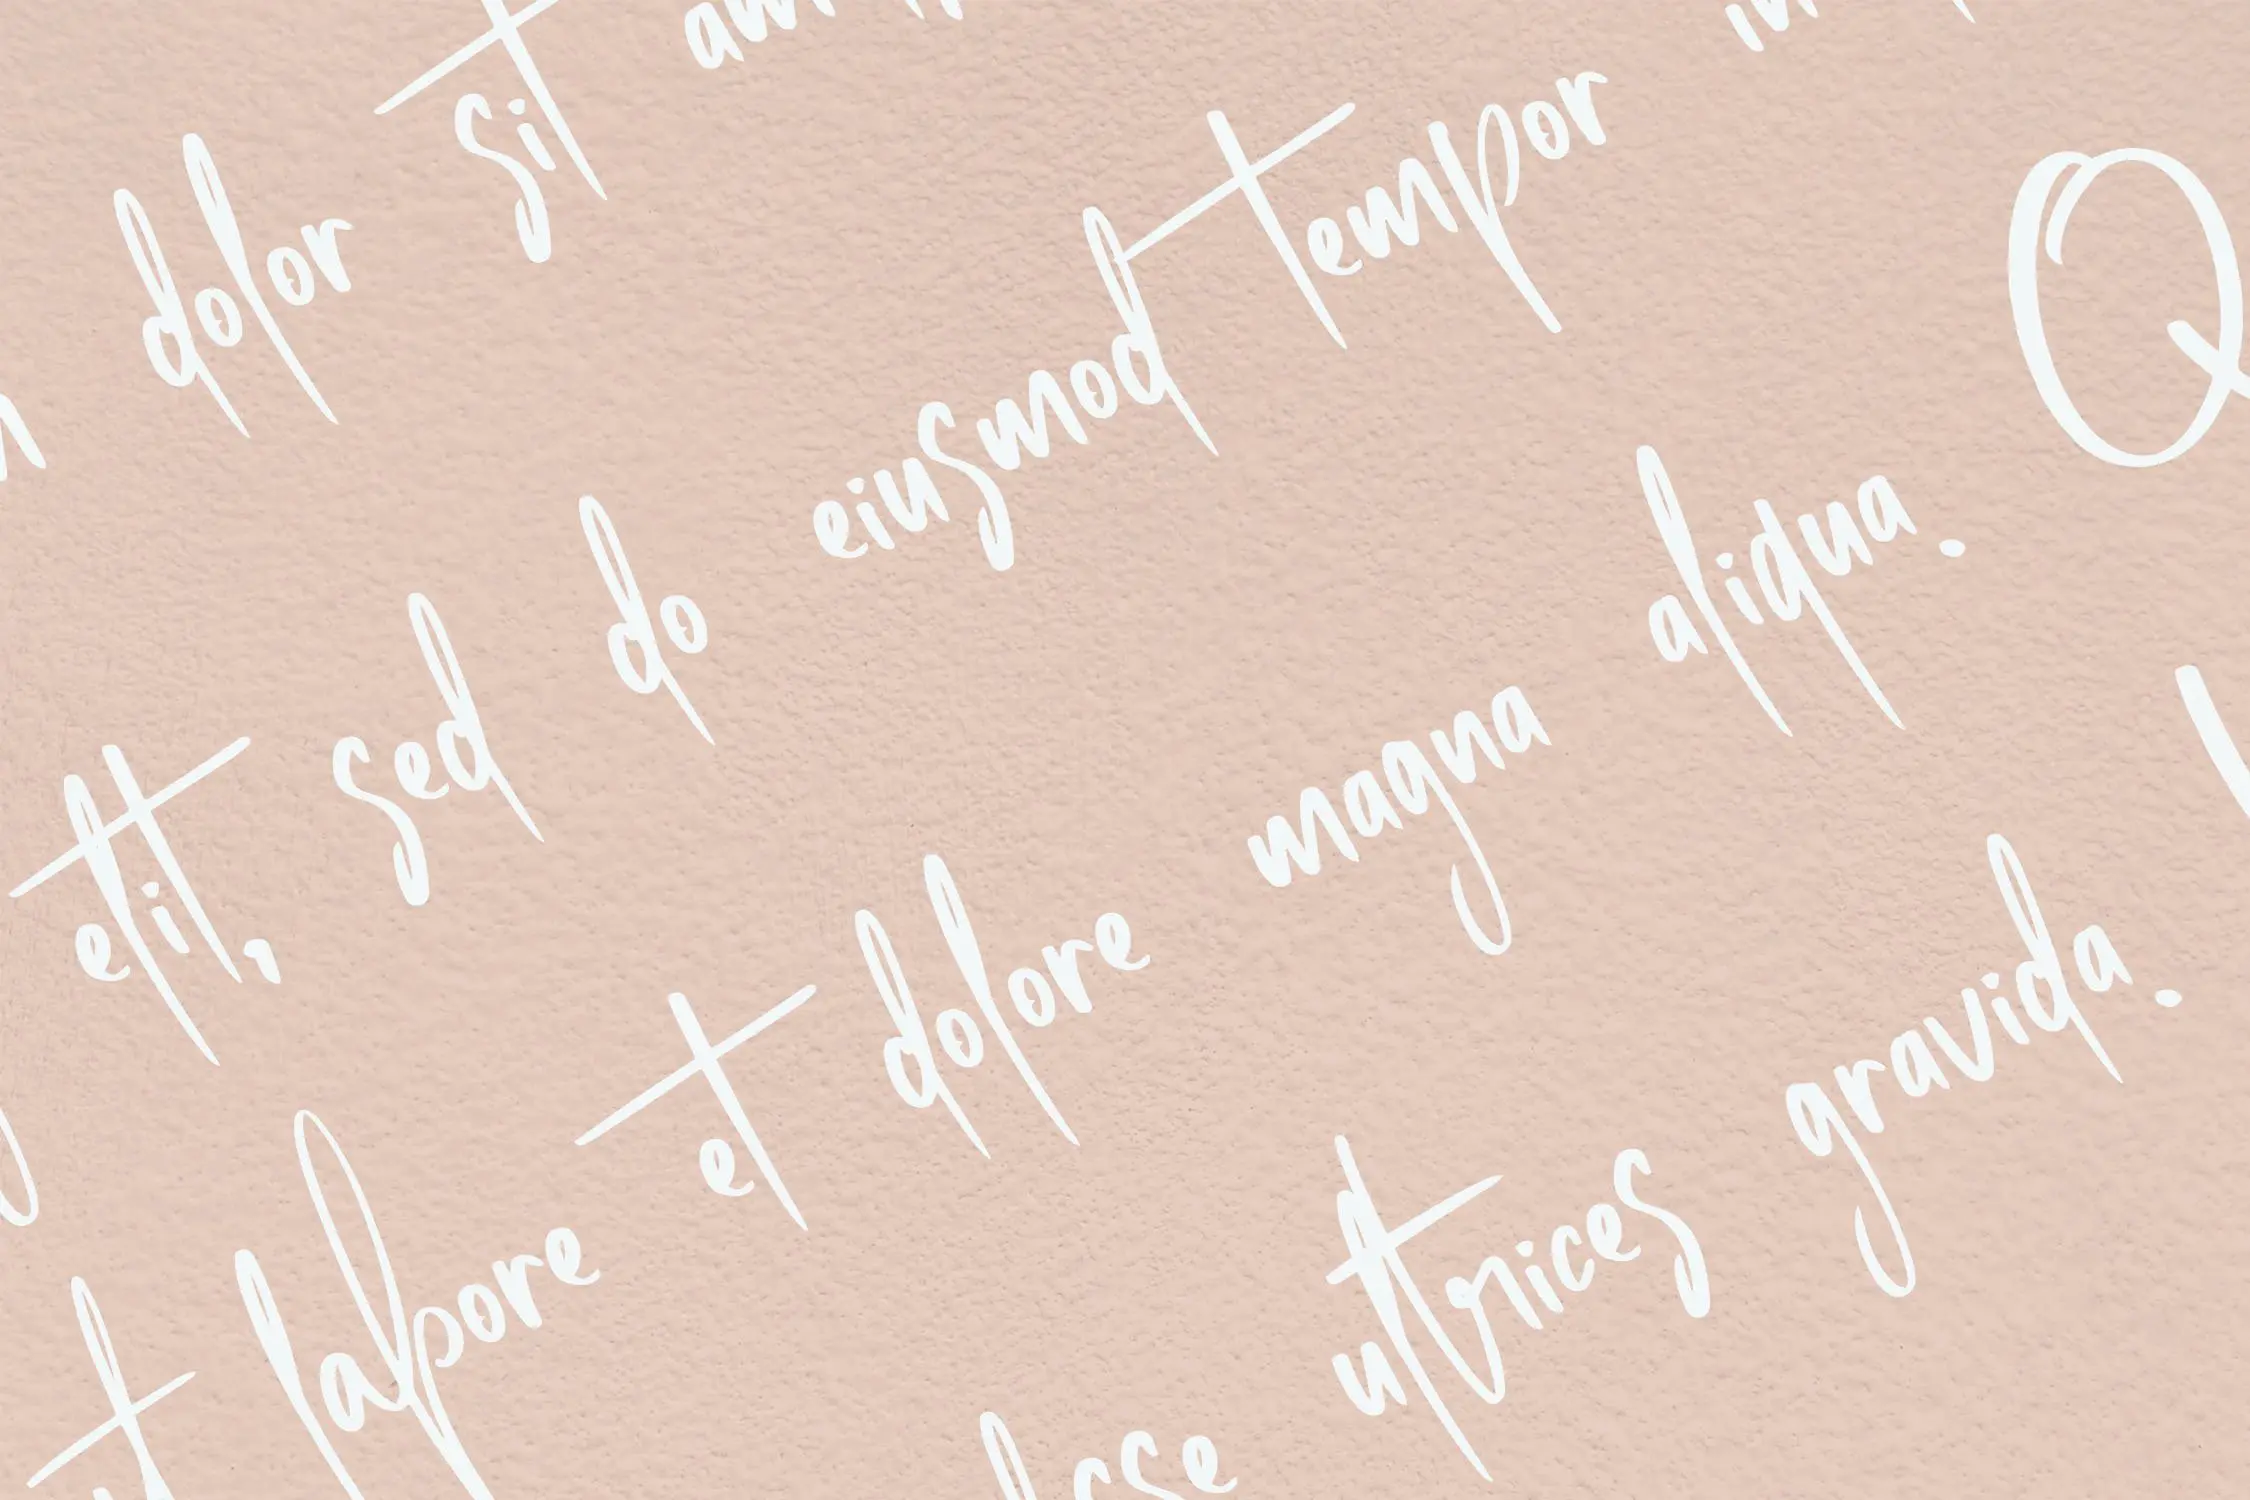 dolor sit
elit, sed do eiusmod tempor
labore et dolore magna aliqua. Q
ultrices gravida.